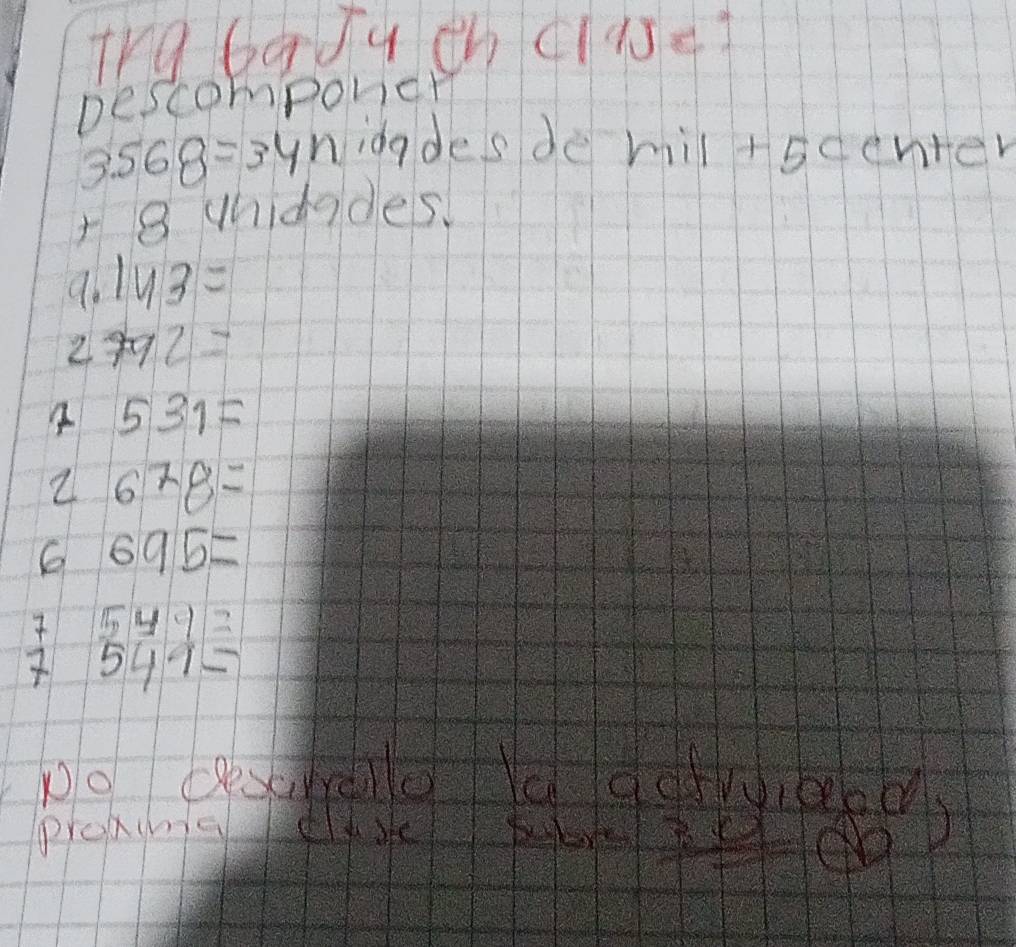 Trabajo en clase:
Descomponer
3.568 = 3 unidades de mil + 5 center
+ 8 unidades.
9.143 =
2792 =
7 531 =
2 678 =
6 695 =
7 549 =
7 541 =
No desarrollo la actividad,
proxima clase